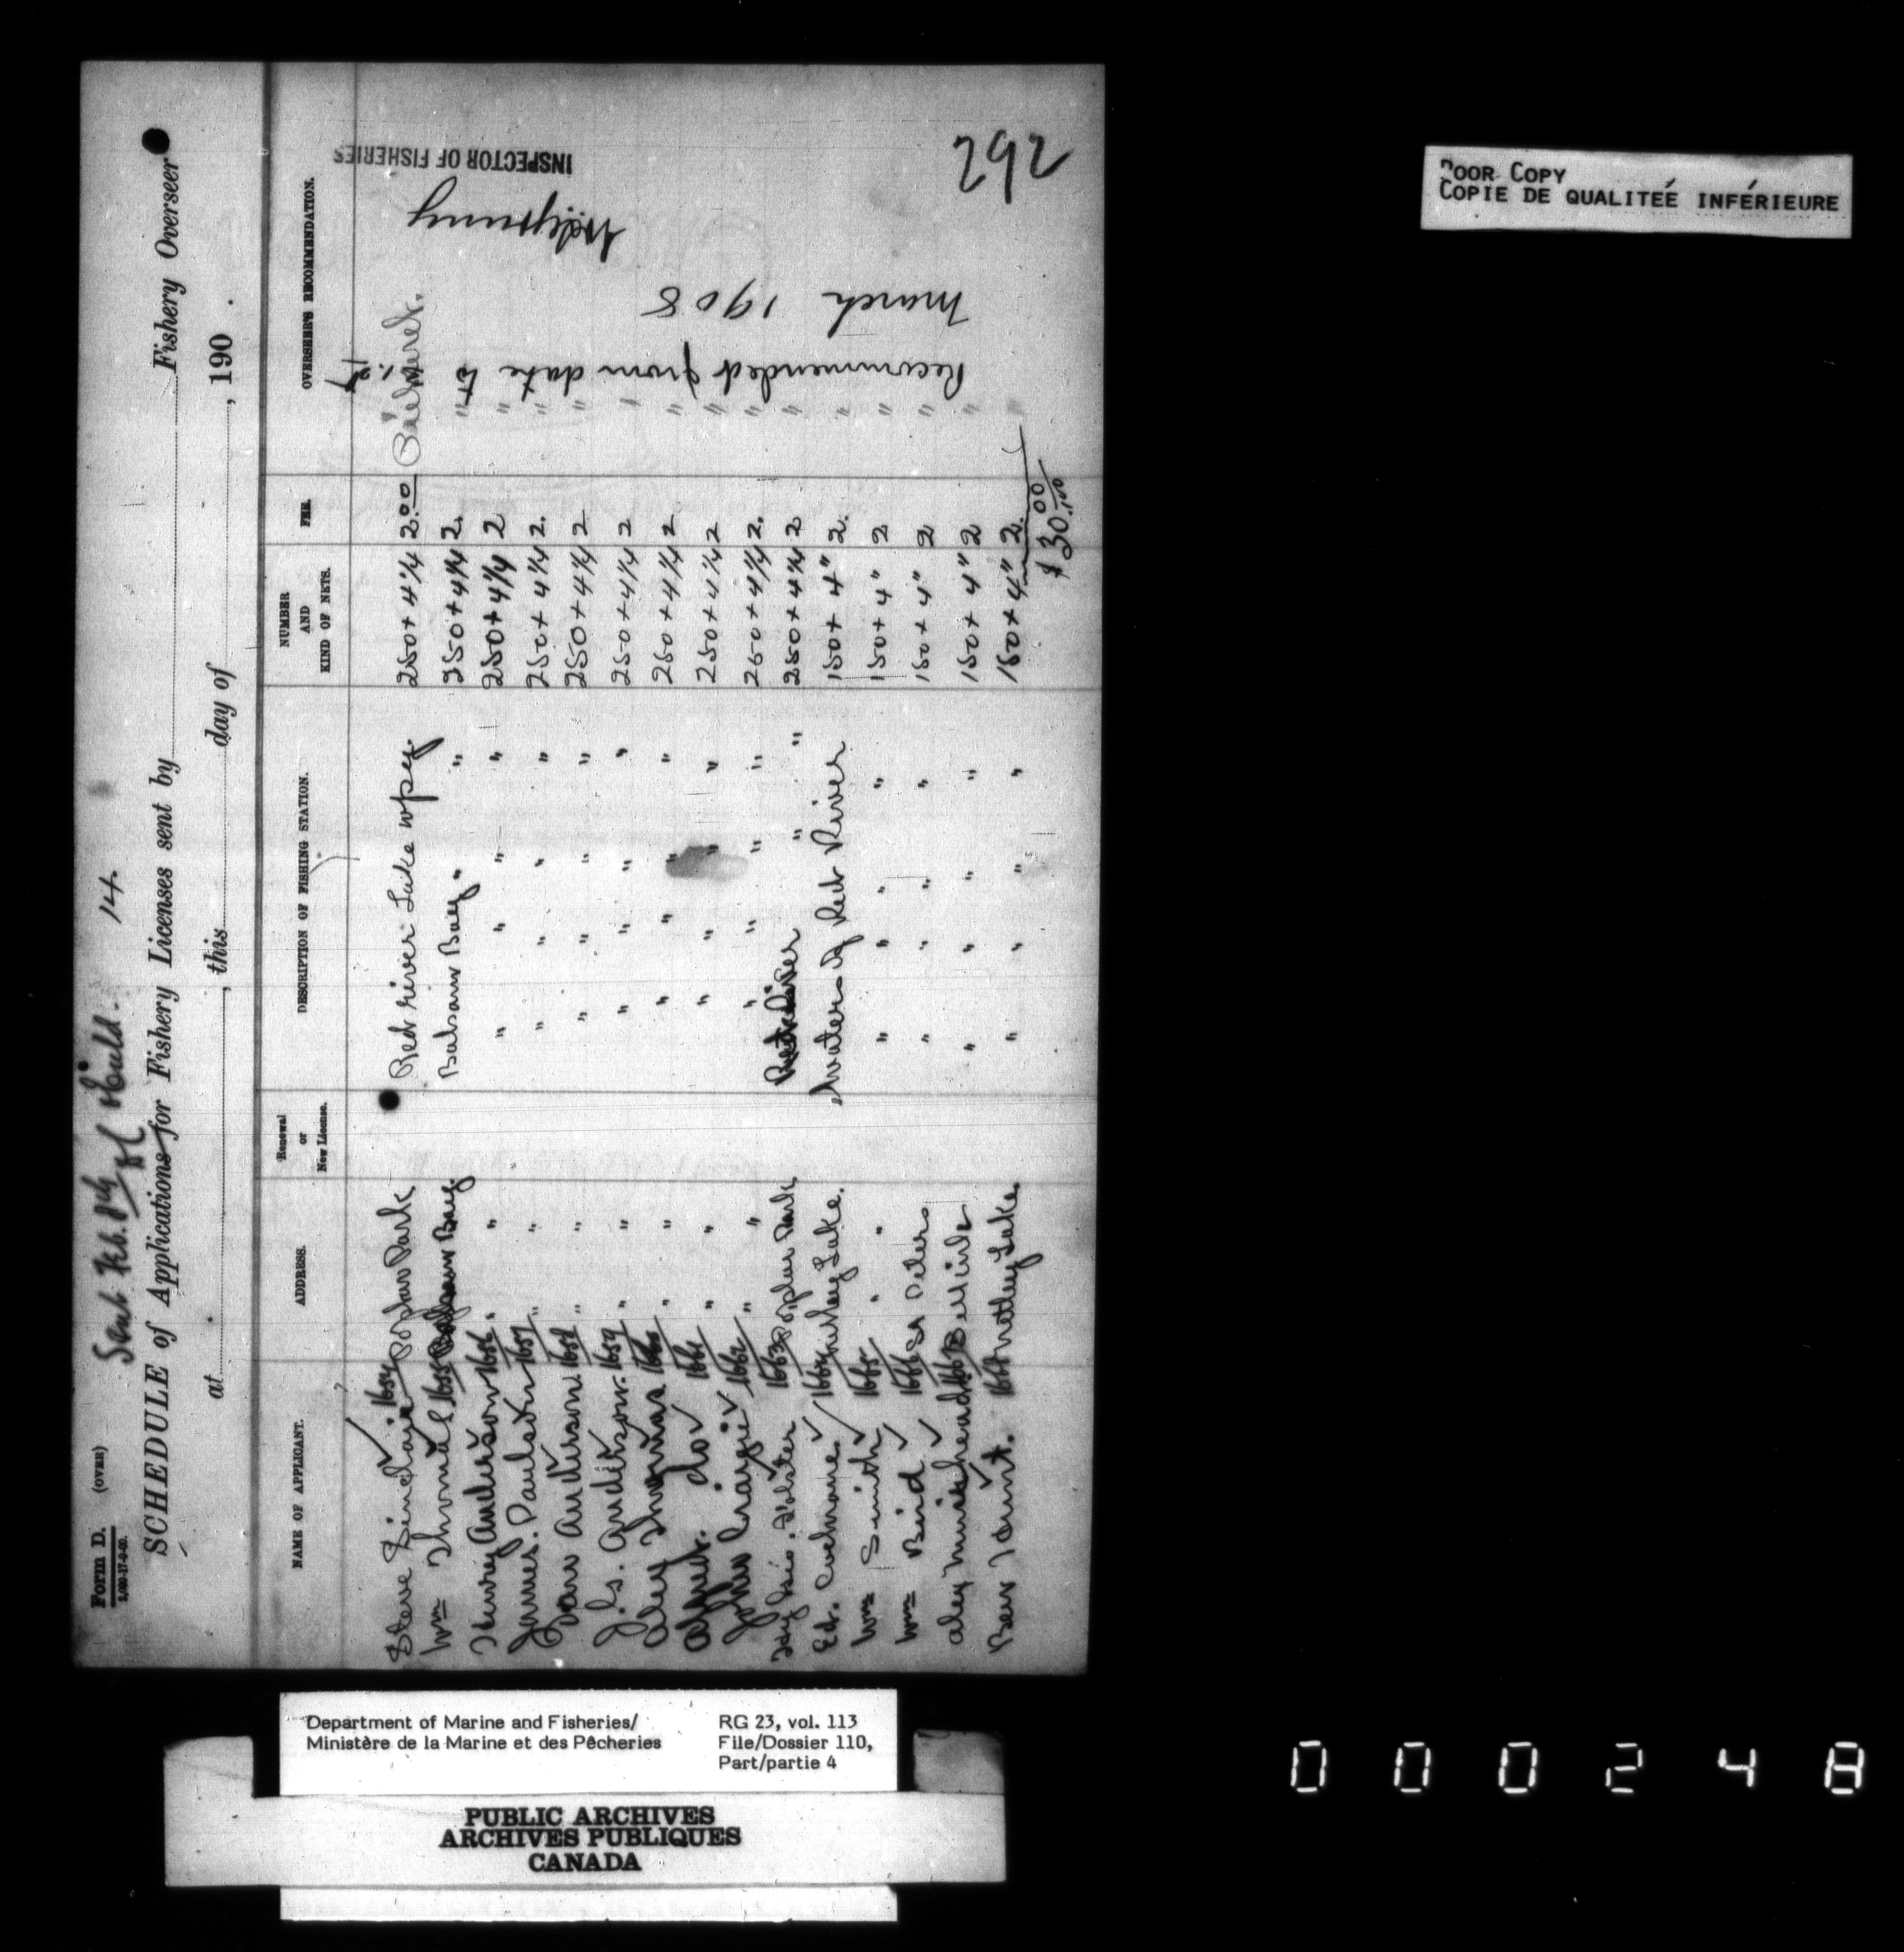 Form D. (OVER)
5,000-17-9-00.
Sent Feb. 8th
14.
SCHEDULE of Applications for Fishery Licenses sent by Fishery Overseer
at , this day of , 190 .
NAME OF APPLICANT. ADDRESS. Renewal or New License. DESCRIPTION OF FISHING STATION. NUMBER AND KIND OF NETS. FEE. OVERSEER'S RECOMMENDATION.
Steve Sinclair 1654 Poplar Park Red river Lake wpeg. 250 + 4¼ 2.00
Wm Thomas 1655 Balsam Bay. Balsam Bay " " 250 + 4¼ 2. "
Henry Anderson 1656 " " " " " " 250 + 4¼ 2 "
James. Paulson 1657 " " " " " " 250 + 4¼ 2. "
Dan Anderson 1658 " " " " " " 250 + 4¼ 2 "
J. S. Anderson. 1659 " " " " " " 250 + 4¼ 2 "
Alex Thomas 1660 " " " " " " 250 + 4¼ 2 "
Alfred. do 1661 " " " " " " 250 + 4¼ 2 "
John Craigie 1662 " " " " " " 250 + 4¼ 2. "
1663 Poplar Park Red River " " 250 + 4¼ 2 "
Ed. Cochrane. 1664 Lake. Waters of Red River 150 + 4" 2. "
Wm Smith 1665 " " " " " " 150 + 4" 2 "
Wm Bird 1666 St Peters " " " " 150 + 4" 2 "
Alex 1667 " " " " 150 + 4" 2 "
Ben 1668 Netley Lake. " " " " 150 + 4" 2. "
$30.00
Recommended from date to
March 1908
INSPECTOR OF FISHERIES
292
POOR COPY
COPIE DE QUALITEÉ INFÉRIEURE
Department of Marine and Fisheries/
Ministère de la Marine et des Pêcheries
RG 23, vol. 113
File/Dossier 110,
Part/partie 4
PUBLIC ARCHIVES
ARCHIVES PUBLIQUES
CANADA
000248